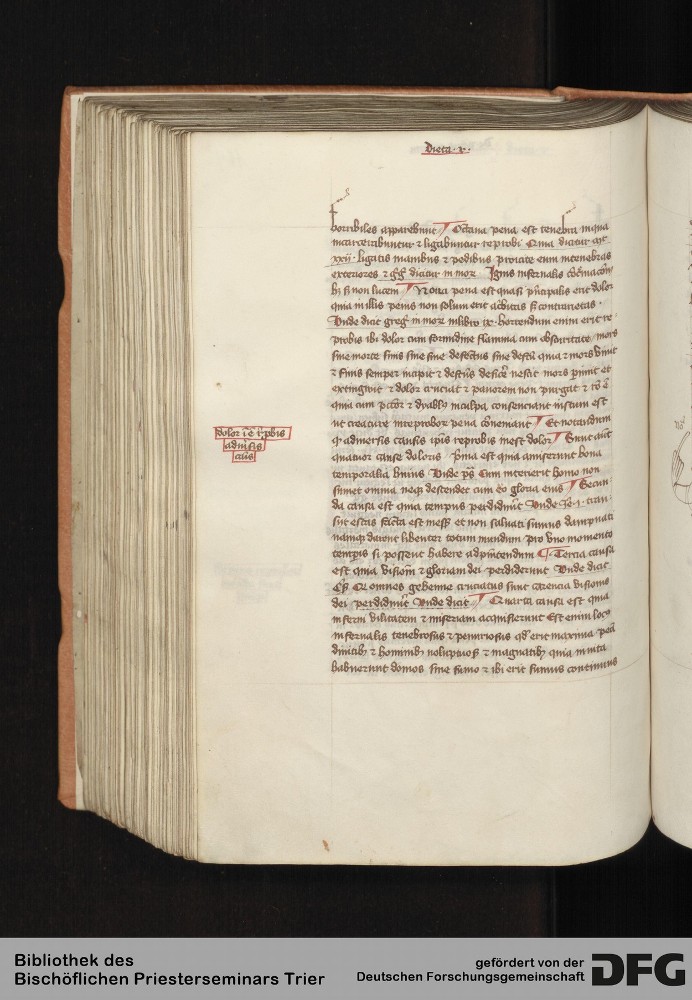 Dieta · x ·
horribiles apparebunt Octaua pena est tenebra in qua
incarcerabuntur & ligabuntur reprobi Qma dicitur
xxij · ligatis manibus & pedibus proicite eum in tenebras
exteriores & dicitur in mor Ignis infernalis
non lucem Nona pena est quasi pncipalis erit dolor
quia in illis penis non solum erit acbitas contrarietas ·
Unde dicit greg in mor in libro ix · horrendum enim erit re
probis ibi dolor cum formidine flamma cum obscuritate mors
sine morte finis sine fine defectus sine defectu quia & mors viuit
& finis semper incipit & defectus deficere nescit mors pimit et
extingwit & dolor cruciat & pauorem non purgat &
quia cum & dyablus in culpa consenciant iustum est
ut creature in reprobor pena conueniant Et notandum
q adinersis causis ipis reprobis inest dolor Sunt aut
quatuor cause doloris pma est quia amiserunt bona
temporalia huius Unde ps Cum interierit homo non
sumet omnia neq descendet cum eo gloria eius Secun
da causa est quia tempus perdidunt Unde Je · i · tran
sut estas finita est mess et non saluati sumus dampnati
namq darent libenter totum mundum pro vno momento
tempis si possent habere ad pntendum Tercia causa
est quia visiom & gloriam dei perdiderunt Unde dicit
omnes gehenne cruciatus sunt carencia visionis
dei perdidunt Unde dicit Quarta causa est quia
inferni vilitatem & miseriam acquisierunt Est enim locus
infernalis tenebrosus & penuriosus qd erit maxima pena
diuitib & hominib voluptuos & magnatib quia in vita
habuerunt domos sine fumo & ibi erit fumus continuus
dolor
Bibliothek des
Bischöflichen Priesterseminars Trier
gefördert von der
Deutschen Forschungsgemeinschaft
DFG